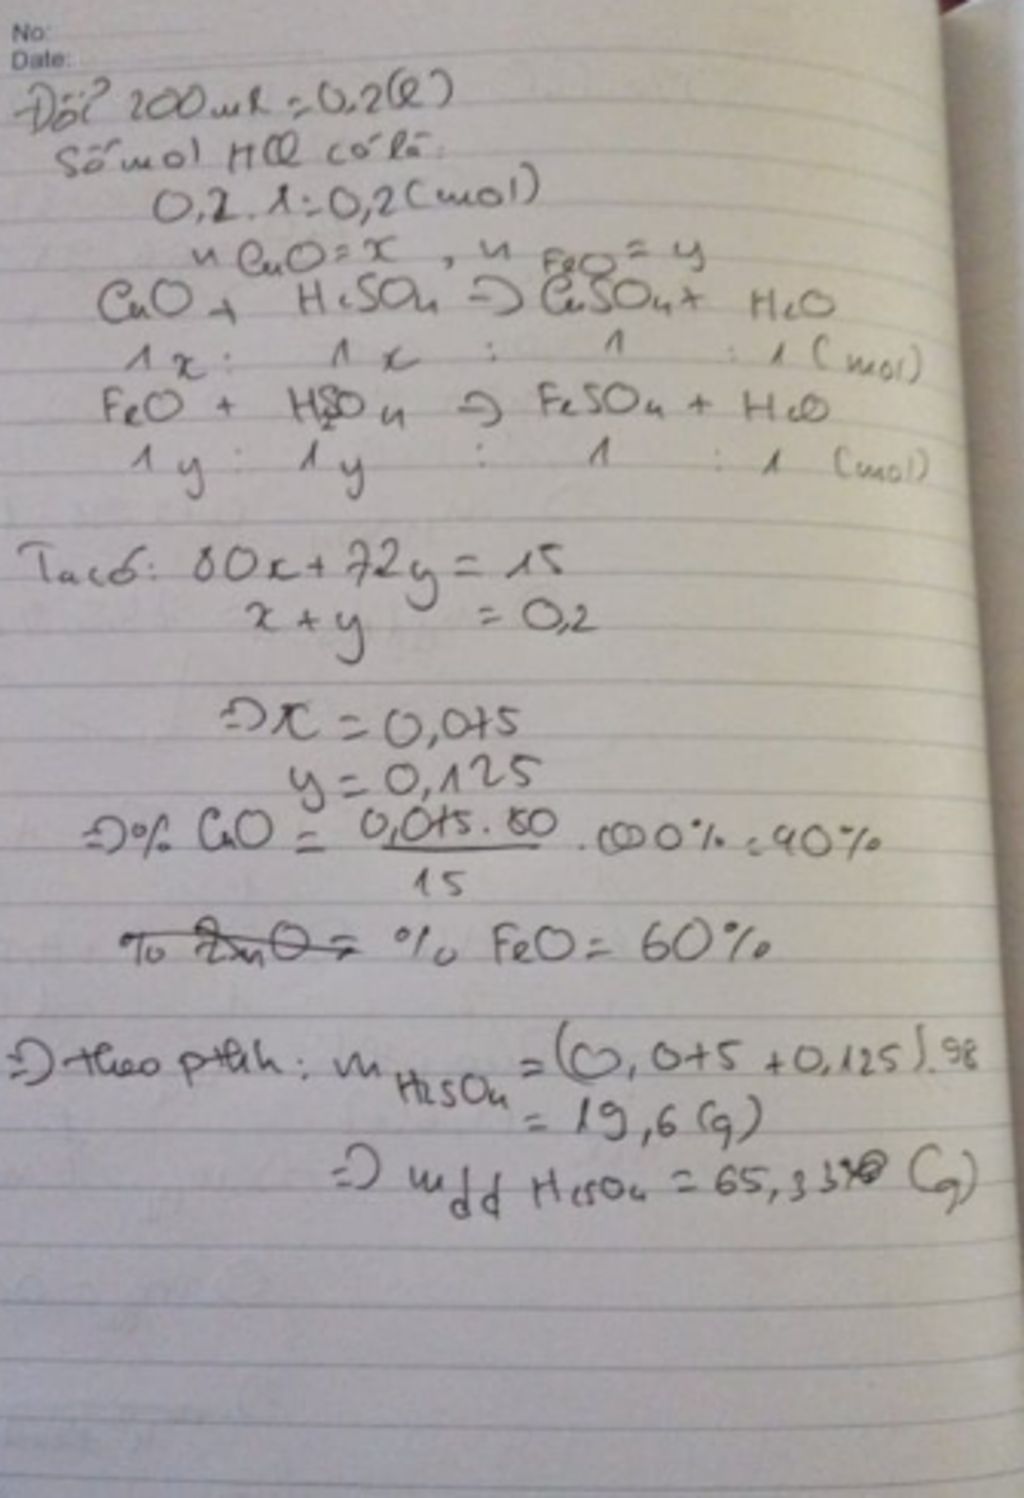 No:
Date:
Đổi 200ml = 0,2(l)
Số mol HCl có là:
0,2.1=0,2(mol)
n CuO = x , n FeO = y
CuO + H2SO4 => CuSO4 + H2O
1x : 1x : 1 : 1 (mol)
FeO + H2SO4 => FeSO4 + H2O
1y : 1y : 1 : 1 (mol)
Ta có: 80x + 72y = 15
x + y = 0,2
=> x = 0,075
y = 0,125
=> % CuO = 0,075.80 / 15 .100% = 40%
% ZnO = % FeO = 60%
=> theo pthh: m H2SO4 = (0,075 + 0,125).98
= 19,6 (g)
=> mdd H2SO4 = 65,33 (g)